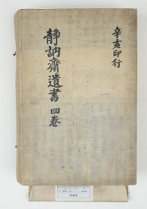 辛亥印行
靜訥齋遺書 四卷